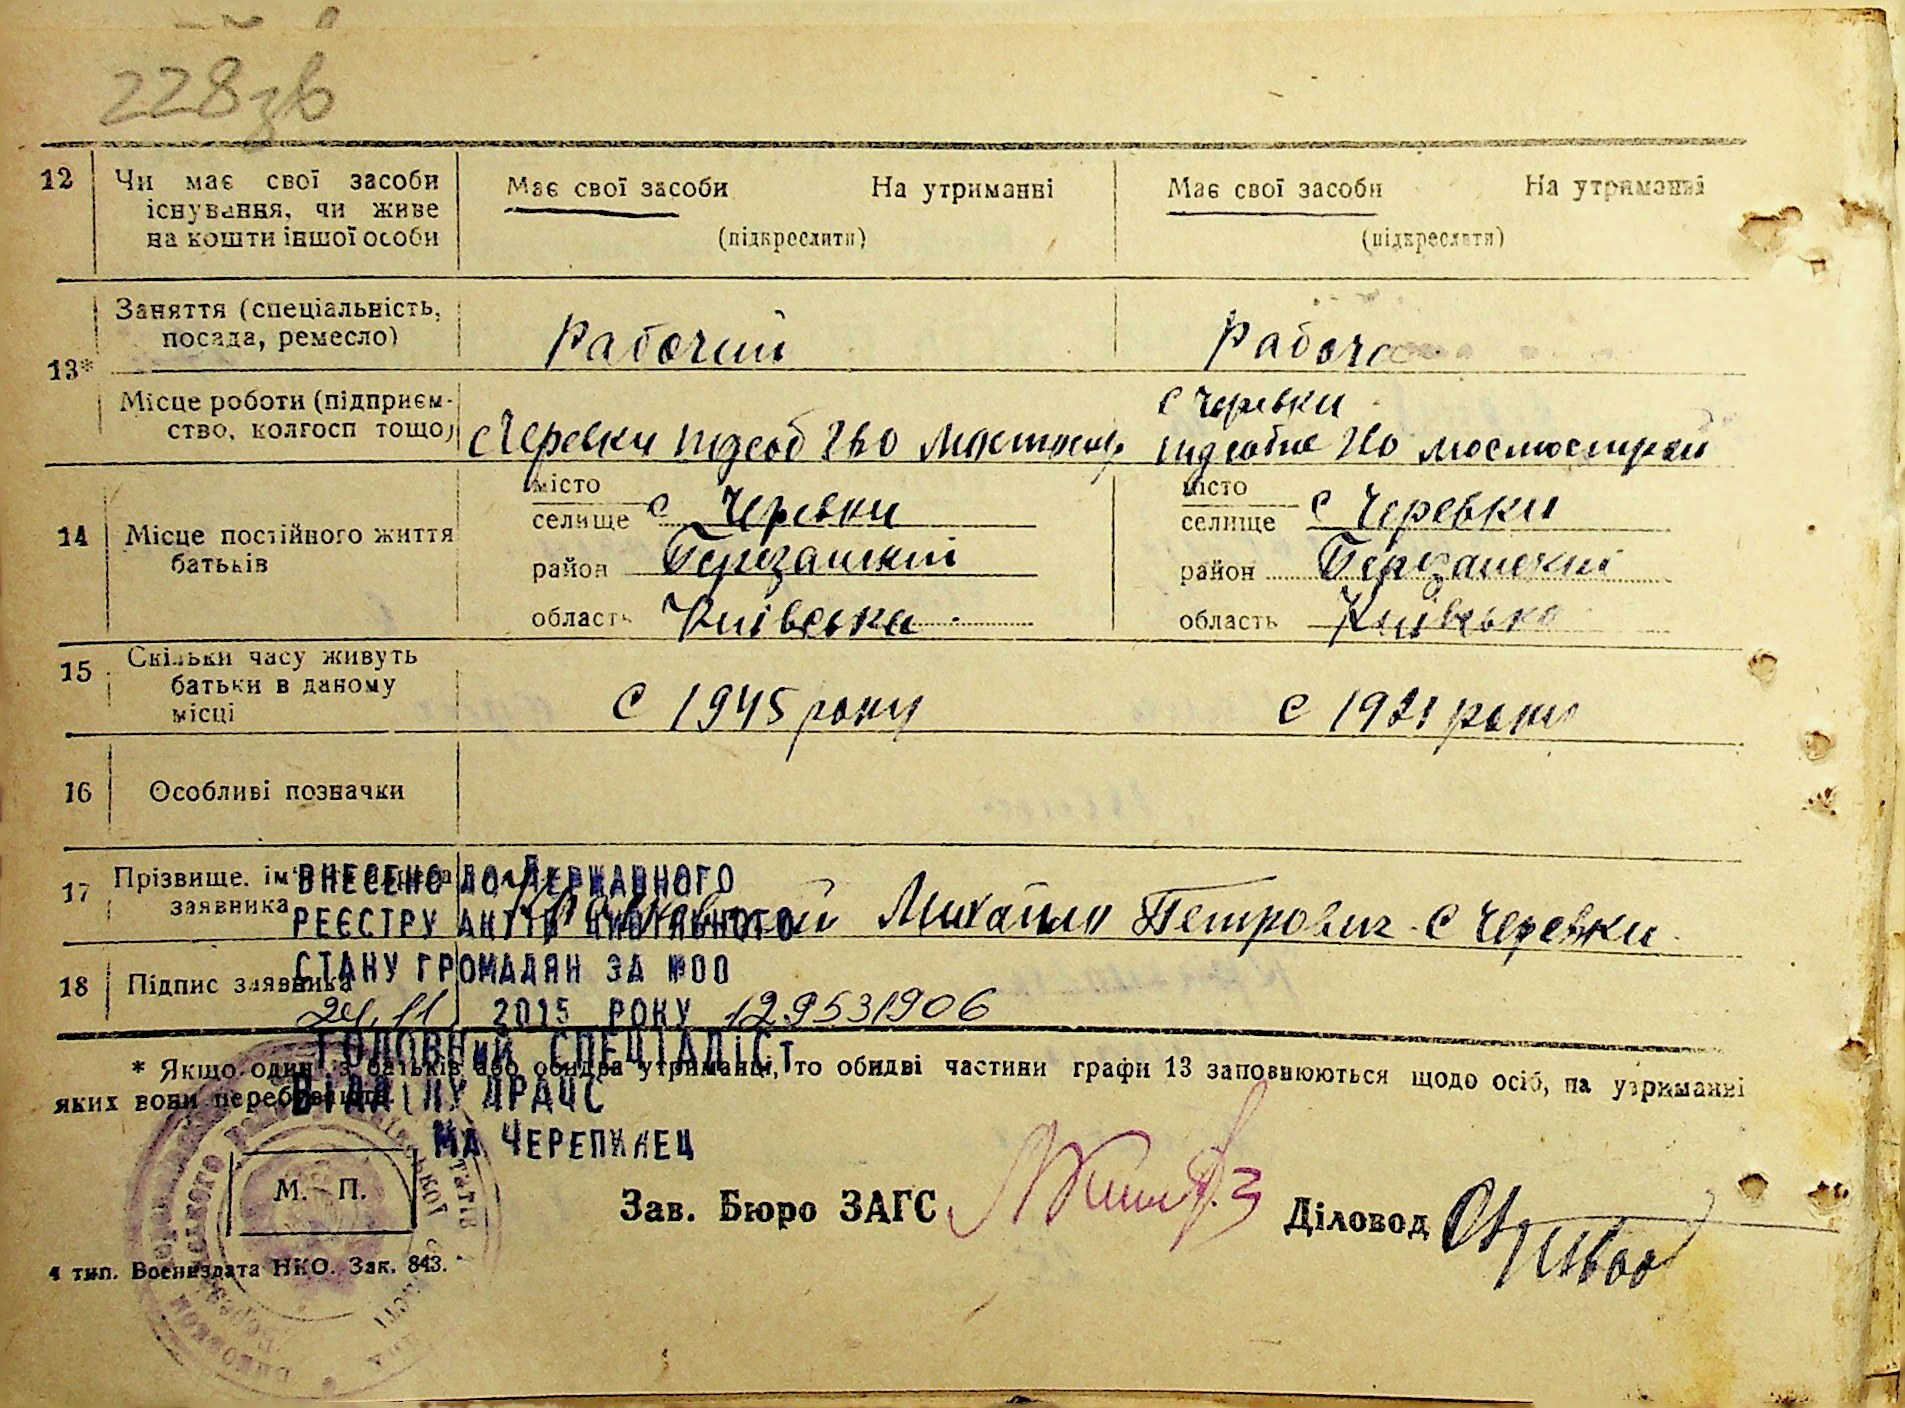 228зв
12 Чи має свої засоби існування, чи живе на кошти іншої особи
Має свої засоби На утриманні
(підкреслити)
Має свої засоби На утриманні
(підкреслити)
13*
Заняття (спеціальність, посада, ремесло)
Рабочий
Рабоча
Місце роботи (підприємство, колгосп тощо)
с Черевки підсоб
с Черевки
підсобне мостострой
14 Місце постійного життя батьків
місто
селище с Черевки
район Березанский
область Київська
місто
селище с Черевки
район Березанский
область Київська
15 Скільки часу живуть батьки в даному місці
С 1945 року
с 1921 року
16 Особливі позначки
17 Прізвище, ім'я та адреса заявника
Михайло Петрович с Черевки
18 Підпис заявника
ВНЕСЕНО ДО ДЕРЖАВНОГО
РЕЄСТРУ АКТІВ ЦИВІЛЬНОГО
СТАНУ ГРОМАДЯН ЗА №00
24.11 2015 РОКУ 129531906
ГОЛОВНИЙ СПЕЦІАЛІСТ
ВІДДІЛУ ДРАЦС
МА ЧЕРЕПИНЕЦ
* Якщо один з батьків або обидва утриманці, то обидві частини графи 13 заповнюються щодо осіб, на утриманні
яких вони перебувають.
М. П.
Зав. Бюро ЗАГС
Діловод
4 тип. Воениздата НКО. Зак. 843.